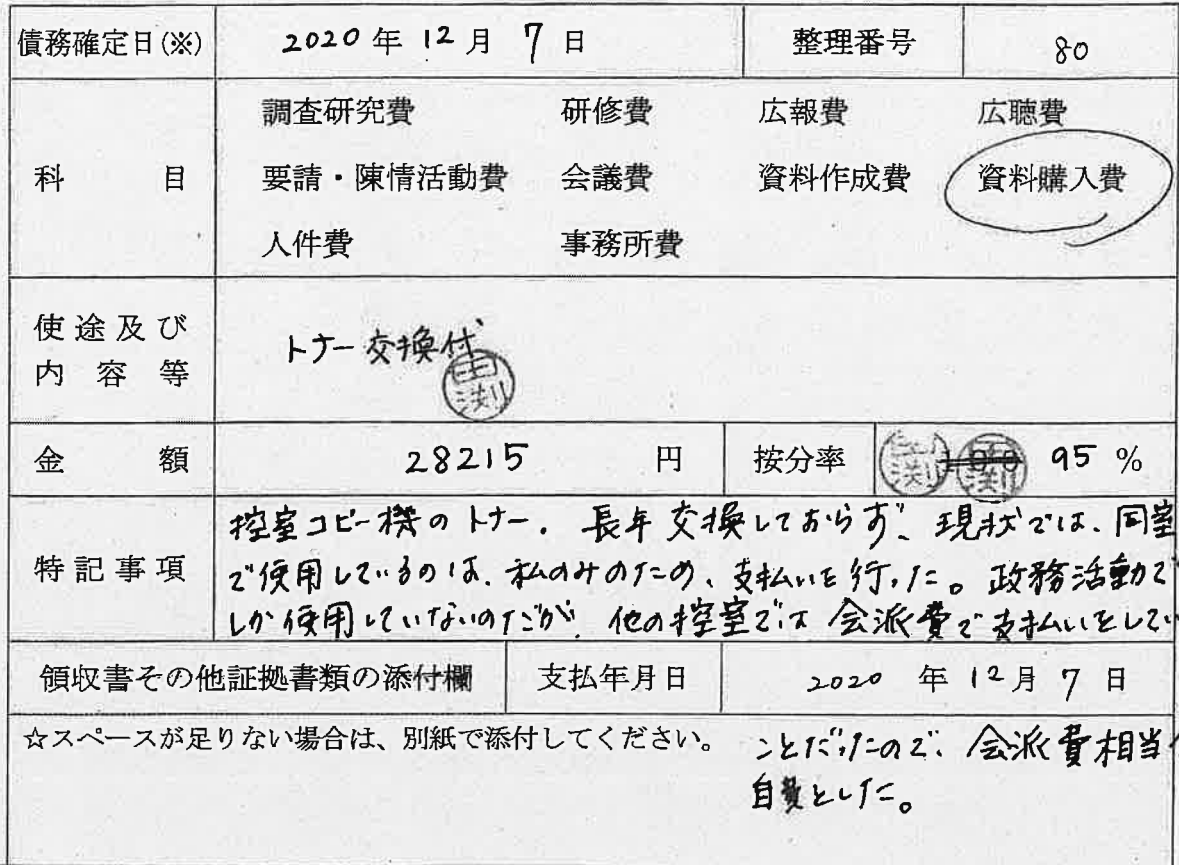 債務確定日(※) 2020 年 12 月 7 日 整理番号 80
調査研究費 研修費 広報費 広聴費
科 目 要請・陳情活動費 会議費 資料作成費 資料購入費
人件費 事務所費
使途及び
内容等
トナー交換代
金 額 28215 円 按分率 100 95 %
特記事項
控室コピー機のトナー. 長年交換しておらず、現状では、同室
で使用しているのは、私のみのため、支払いを行った。政務活動で
しか使用していないのだが、他の控室では会派費で支払いをしてい
領収書その他証拠書類の添付欄 支払年月日 2020 年 12 月 7 日
☆スペースが足りない場合は、別紙で添付してください。 ことだったので、会派費相当
自費とした。